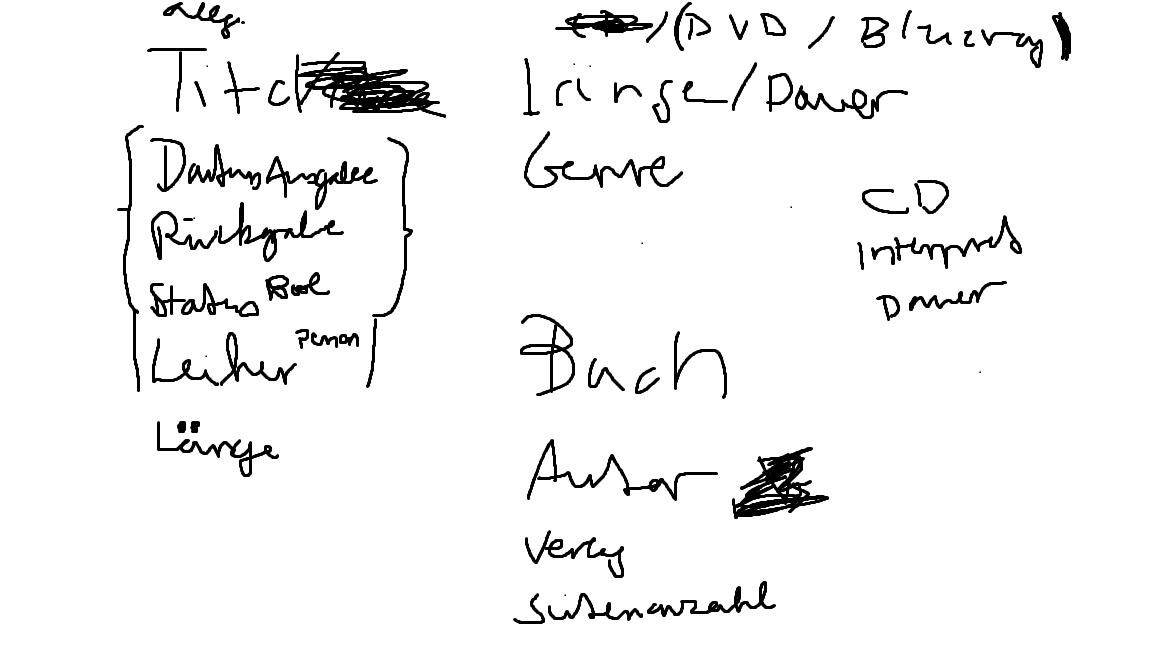 allg.
Titel
Datum Ausgabe
Rückgabe
Status Bool
Leiher Person
Länge
/(DVD / Blueray)
Länge/Dauer
Genre
CD
Interpret
Dauer
Buch
Autor
Verlag
Seitenanzahl